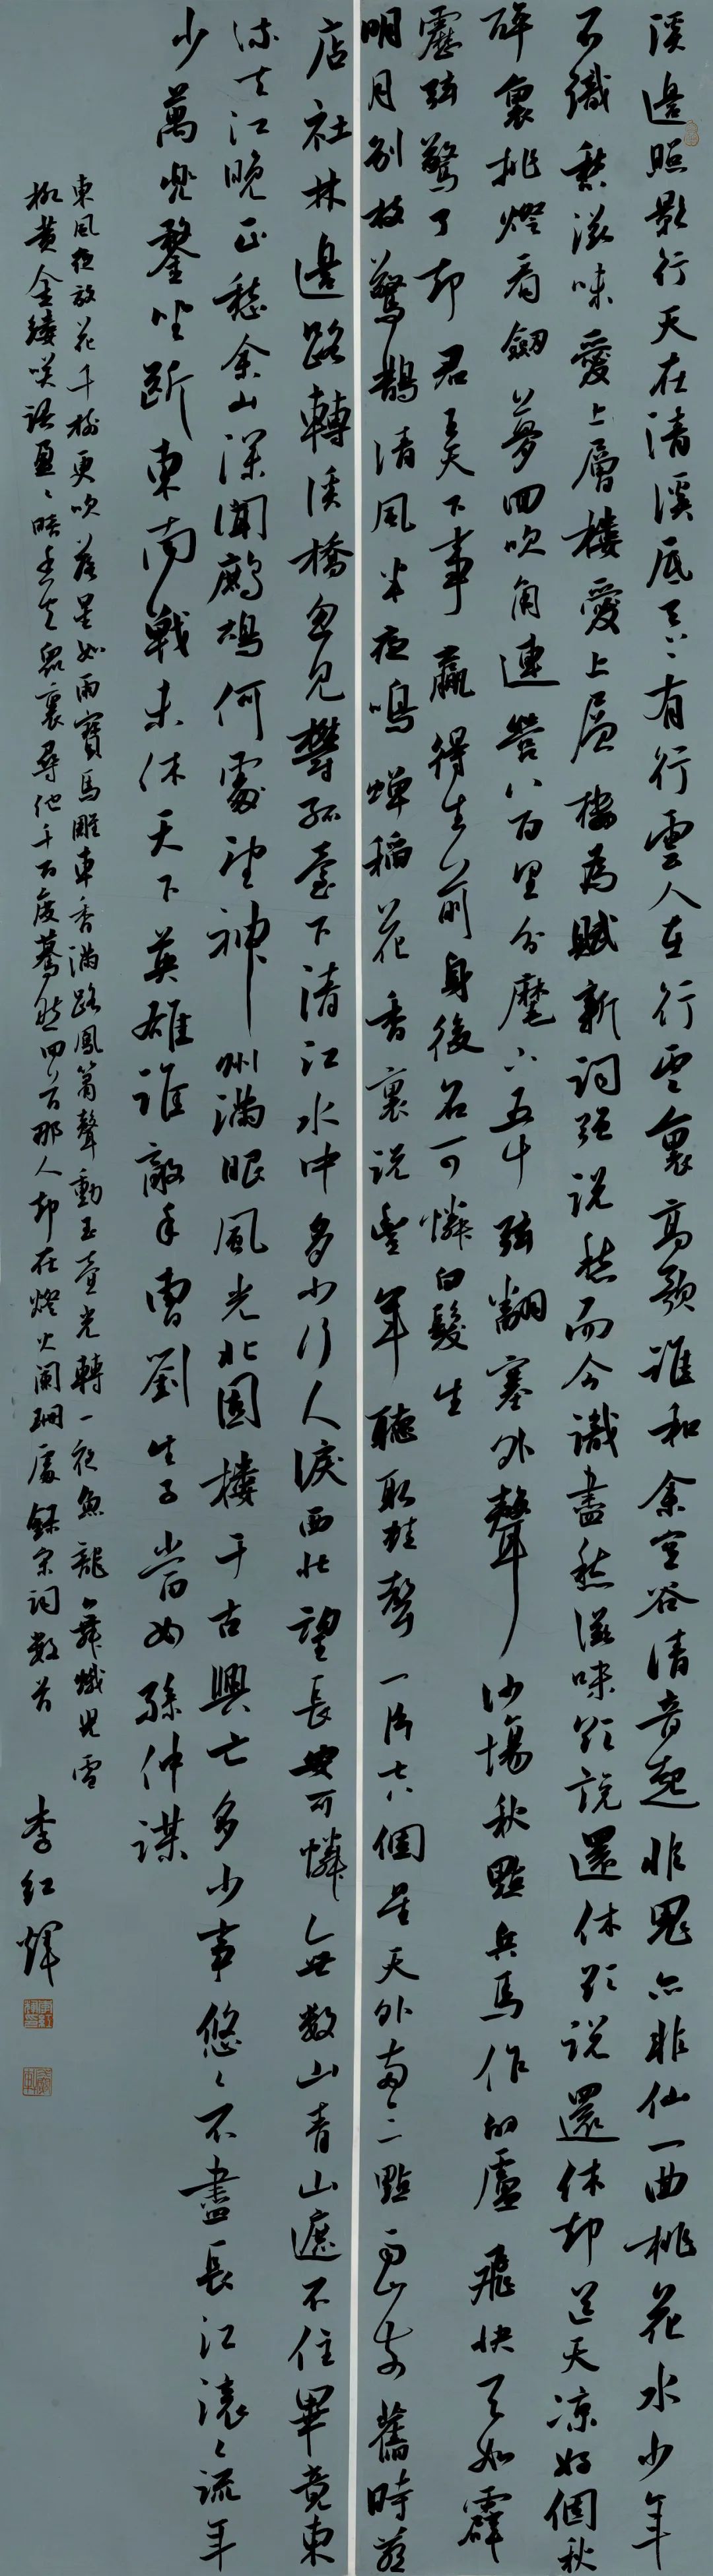 溪邊照影行天在清溪底天上有行雲人在行雲裏高歌誰和余空谷清音起非鬼亦非仙一曲桃花水少年
不識愁滋味愛上層樓愛上層樓為賦新詞強說愁而今識盡愁滋味欲說還休欲說還休却道天凉好個秋
醉裏挑燈看劍夢回吹角連營八百里分麾下五十弦翻塞外聲沙場秋點兵馬作的盧飛快弓如霹
靂弦驚了却君王天下事贏得生前身後名可憐白髮生
明月別枝驚鵲清風半夜鳴蟬稻花香裏說豐年聽取蛙聲一片七八個星天外兩三點雨山前舊時茅
店社林邊路轉溪橋忽見鬱孤臺下清江水中多少行人淚西北望長安可憐無數山青山遮不住畢竟東
流去江晚正愁余山深聞鷓鴣何處望神州滿眼風光北固樓千古興亡多少事悠悠不盡長江滾滾流年
少萬兜鍪坐斷東南戰未休天下英雄誰敵手曹劉生子當如孫仲謀
東風夜放花千樹更吹落星如雨寶馬雕車香滿路鳳簫聲動玉壺光轉一夜魚龍舞蛾兒雪
柳黃金縷笑語盈盈暗香去眾裏尋他千百度驀然回首那人却在燈火闌珊處錄宋詞數首
李紅輝